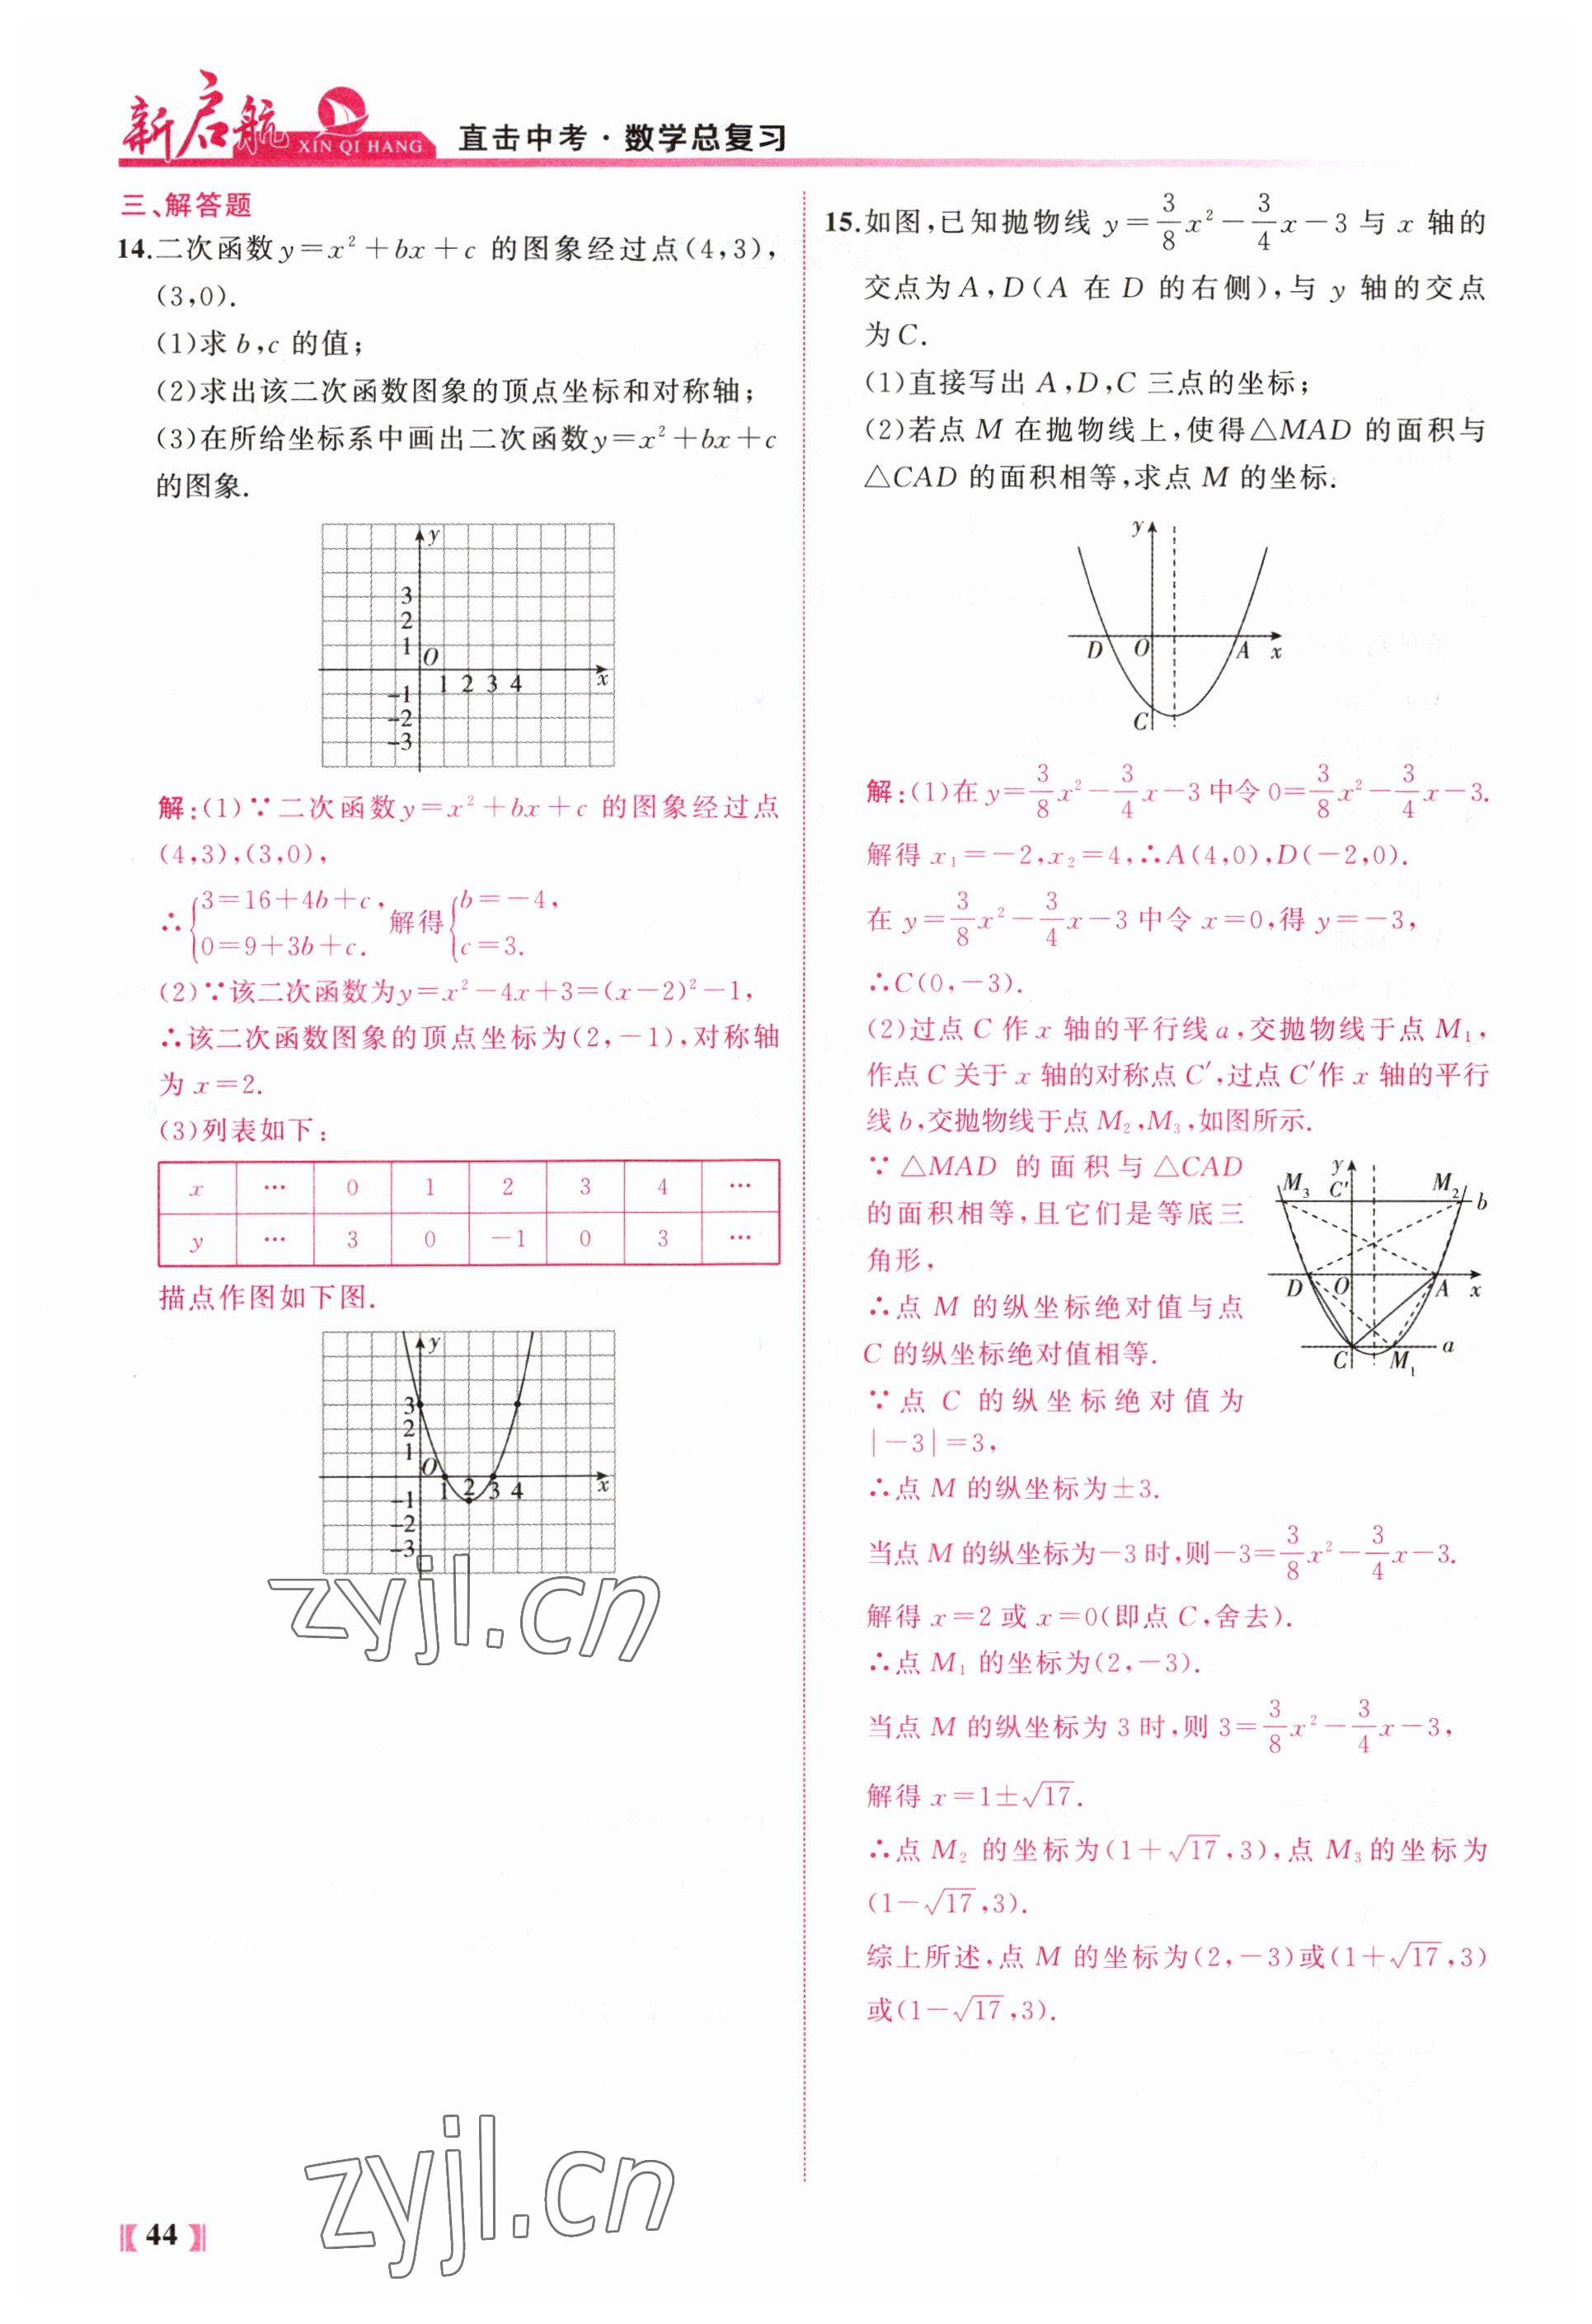 新启航
XIN QI HANG
直击中考·数学总复习
三、解答题
14.二次函数y=x²+bx+c 的图象经过点(4,3),
(3,0).
(1)求 b,c 的值;
(2)求出该二次函数图象的顶点坐标和对称轴;
(3)在所给坐标系中画出二次函数y=x²+bx+c
的图象.
y
3
2
1
O
1 2 3 4 x
-1
-2
-3
解:(1)∵二次函数y=x²+bx+c 的图象经过点
(4,3),(3,0),
∴{3=16+4b+c, 0=9+3b+c. 解得{b=-4, c=3.
(2)∵该二次函数为y=x²-4x+3=(x-2)²-1,
∴该二次函数图象的顶点坐标为(2,-1),对称轴
为 x=2.
(3)列表如下:
x … 0 1 2 3 4 …
y … 3 0 -1 0 3 …
描点作图如下图.
y
3
2
1
O
1 2 3 4 x
-1
-2
-3
zyjl.cn
15.如图,已知抛物线 y=3/8x²-3/4x-3 与 x 轴的
交点为A,D(A 在 D 的右侧),与 y 轴的交点
为C.
(1)直接写出 A,D,C 三点的坐标;
(2)若点 M 在抛物线上,使得△MAD 的面积与
△CAD 的面积相等,求点 M 的坐标.
y
D O A x
C
解:(1)在 y=3/8x²-3/4x-3 中令 0=3/8x²-3/4x-3.
解得 x₁=-2,x₂=4,∴A(4,0),D(-2,0).
在 y=3/8x²-3/4x-3 中令 x=0,得 y=-3,
∴C(0,-3).
(2)过点 C 作 x 轴的平行线 a,交抛物线于点 M₁,
作点 C 关于 x 轴的对称点 C′,过点 C′作 x 轴的平行
线 b,交抛物线于点 M₂,M₃,如图所示.
∵△MAD 的面积与△CAD
的面积相等,且它们是等底三
角形,
∴点 M 的纵坐标绝对值与点
C 的纵坐标绝对值相等.
∵点 C 的纵坐标绝对值为
|-3|=3,
y
M₃ C′ M₂ b
D O A x
C M₁ a
∴点 M 的纵坐标为±3.
当点 M 的纵坐标为-3 时,则-3=3/8x²-3/4x-3.
解得 x=2 或 x=0(即点 C,舍去).
∴点 M₁ 的坐标为(2,-3).
当点 M 的纵坐标为 3 时,则 3=3/8x²-3/4x-3,
解得 x=1±√17.
∴点 M₂ 的坐标为(1+√17,3),点 M₃的坐标为
(1-√17,3).
综上所述,点 M 的坐标为(2,-3)或(1+√17,3)
或(1-√17,3).
zyjl.cn
44